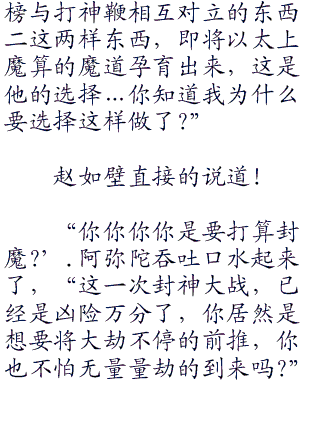 榜与打神鞭相互对立的东西
二这两样东西，即将以太上
魔算的魔道孕育出来，这是
他的选择…你知道我为什么
要选择这样做了？”
赵如壁直接的说道！
“你你你你是要打算封
魔？’.阿弥陀吞吐口水起来
了，“这一次封神大战，已
经是凶险万分了，你居然是
想要将大劫不停的前推，你
也不怕无量量劫的到来吗？”